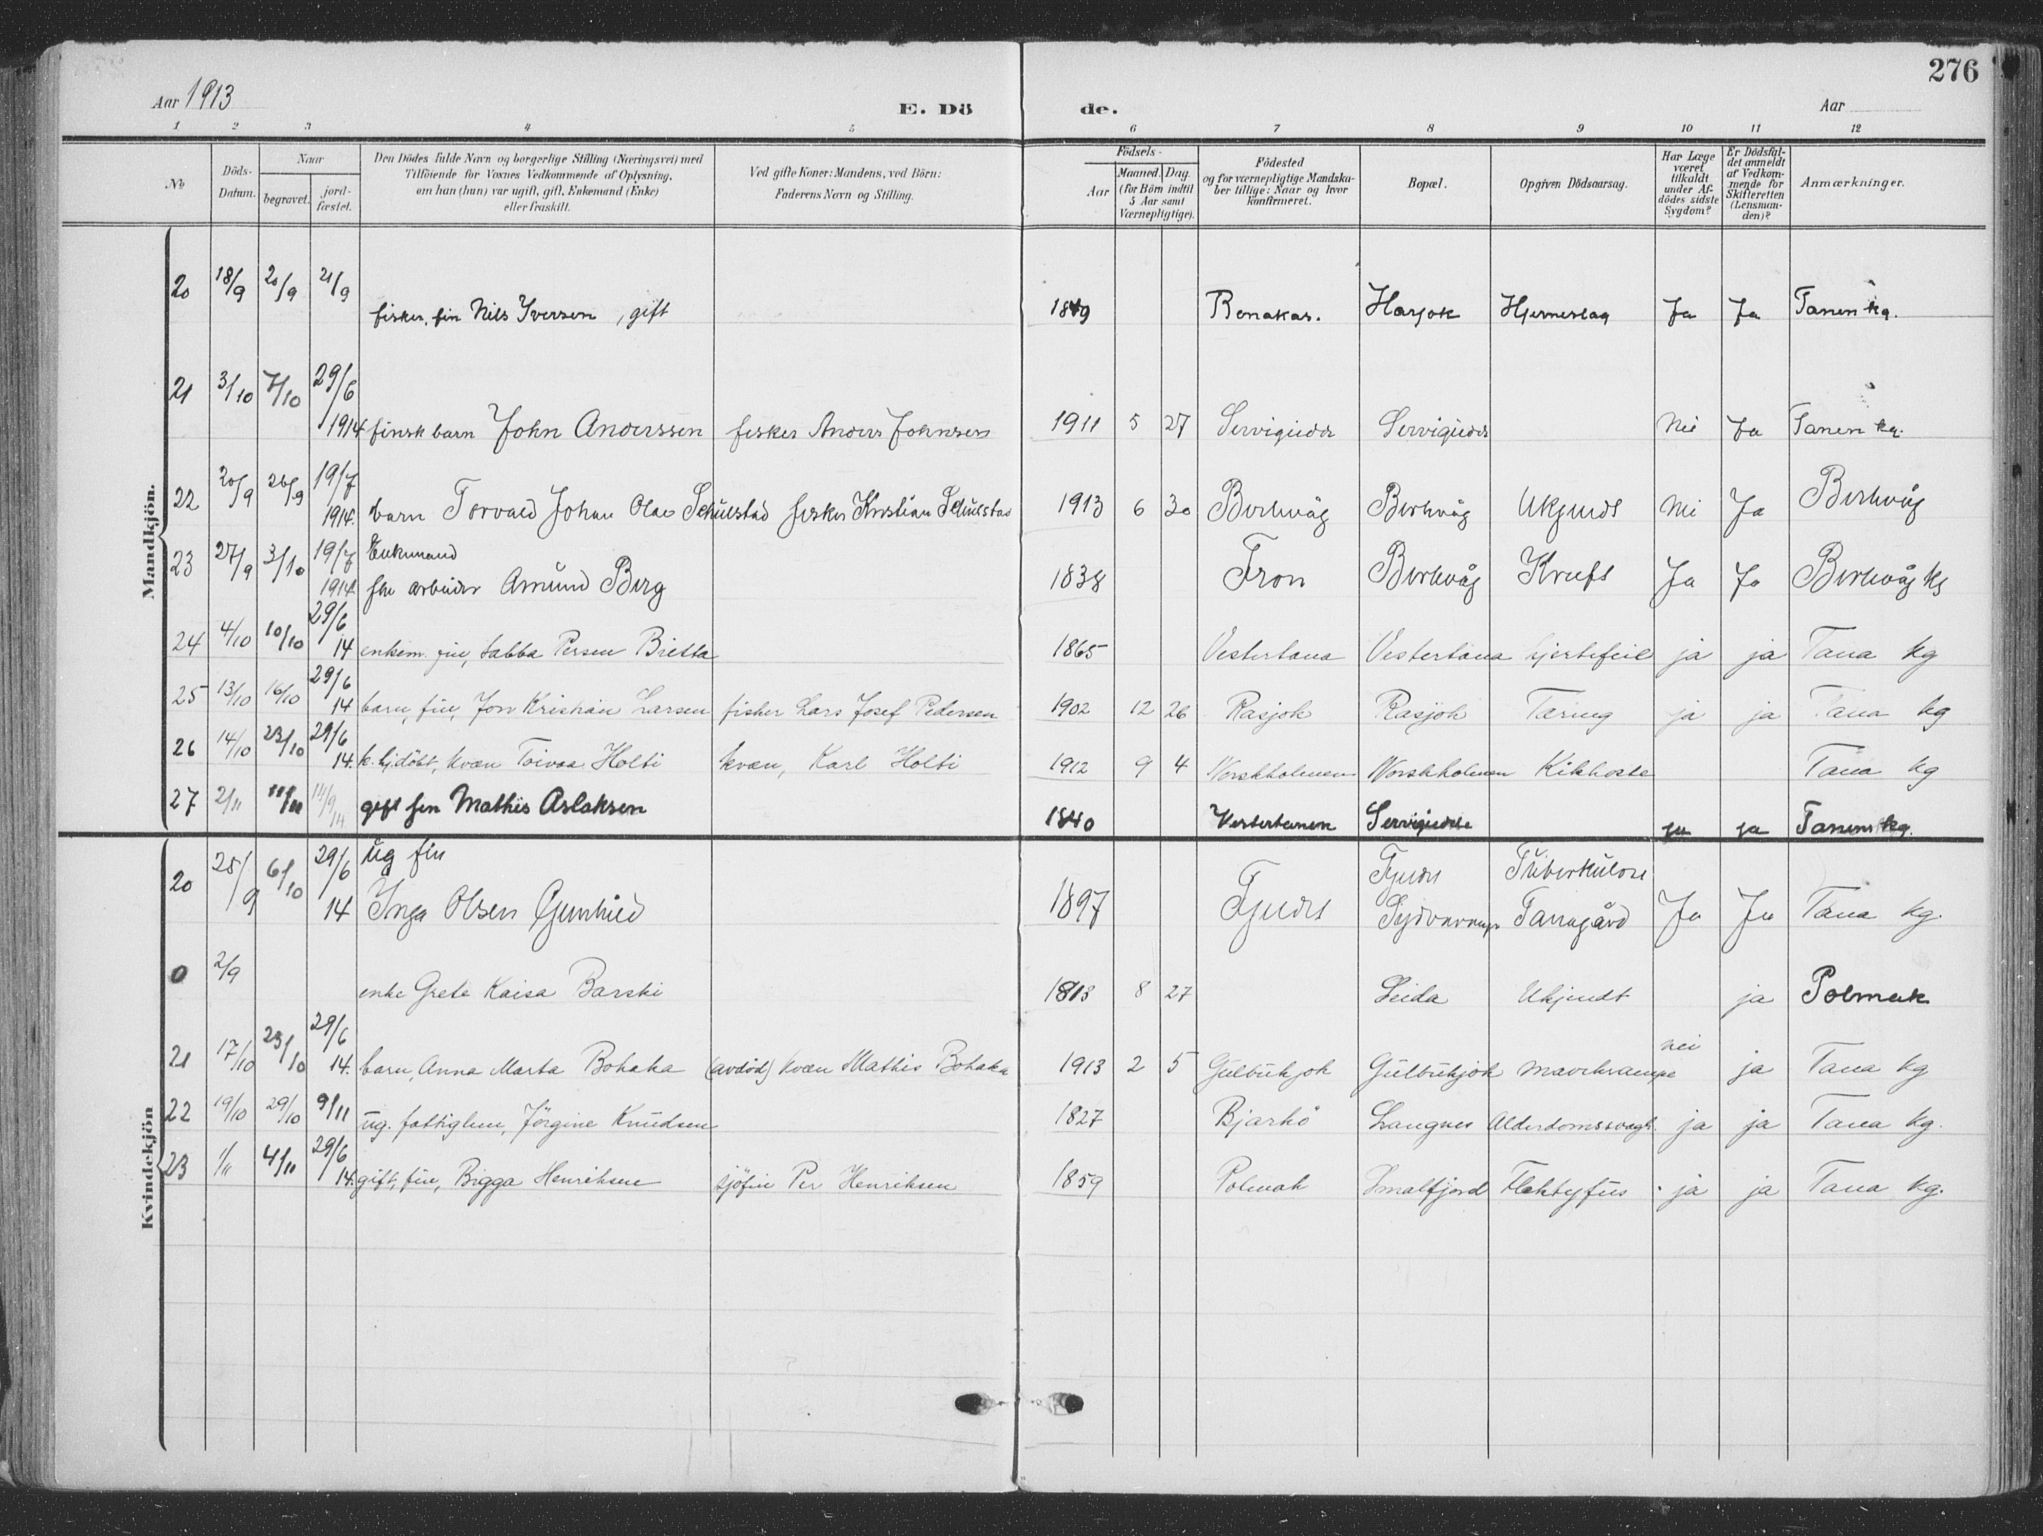 276
Aar 1913
E. Dö de.
Aar
1 2 3 4 5 6 7 8 9 10 11 12
No
Döds-Datum.
Naar
begravet.
jord-fæstet.
Den Dödes fulde Navn og borgerlige Stilling (Næringsvei) med
Tilföiende for Voxnes Vedkommende af Oplysning,
om han (hun) var ugift, gift, Enkemand (Enke)
eller fraskilt.
Ved gifte Koner: Mandens, ved Börn:
Faderens Navn og Stilling.
Födsels-
Aar
Maaned. Dag.
(for Börn indtil
5 Aar samt
Værnepligtige).
Födested
og for værnepligtige Mandska-
ber tillige: Naar og hvor
konfirmeret.
Bopæl.
Opgiven Dödsaarsag.
Har Læge
været
tilkaldt
under Af-
dödes sidste
Sygdom?
Er Dödsfal-
det anmeldt
af Vedkom-
mende for
Skifteretten
(Lensman-
den)?
Anmærkninger.
Mandkjön.
20 18/9 20/9 21/9 fisker, fin Nils Iversen, gift 1849 Bonakas. Harjok Hjerneslag Ja Ja Tanen kg.
21 3/10 7/10 29/6 1914 finsk barn John Anderssen fisker Anders Johnsen 1911 5 27 Nei Ja Tanen kg.
22 20/9 26/9 19/7 1914. barn Torvald Johan Olav Schulstad fisker Kristian Schulstad 1913 6 30 Berlevåg Berlevåg Ukjendt Nei Ja Berlevåg
23 27/9 3/10 19/7 1914 Enkemand
fhv arbeider Amund Berg 1838 Fron Berlevåg Kreft Ja Ja Berlevåg kg
24 4/10 10/10 29/6 14 enkem. fin, Sabba Persen Bietta 1865 Vestertana Vestertana hjertefeil ja ja Tana kg
25 13/10 16/10 29/6 14 barn, fin, Jon Kristian Larsen fisker Lars Josef Pedersen 1902 12 26 Rasjok Rasjok Tæring ja ja Tana kg
26 14/10 23/10 29/6 14. k. hjdöbt, kvæn Toivaa Holti kvæn, Karl Holti 1912 9 4 Norskholmen Norskholmen Kikhoste Tana kg
27 2/11 11/11 11/9 14 gift fin Mathis Aslaksen 1840 Vestertanen ja ja Tanens kg.
Kvindekjön
20 25/9 6/10 29/6 14 ug fin
Inga Olsen 1897 Tuberkulose
Ja Ja Tana kg.
0 2/9 enke Grete Kaisa Barski 1813 8 27 Seida Ukjendt ja Polmak
21 17/10 23/10 29/6 14. barn, Anna Marta Bohaka (avdöd) kvæn Mathis Bohaka 1913 2 5 Gulbukjok Gulbukjok mavekrampe nei ja Tana kg
22 19/10 29/10 9/11 ug. fattiglem, Jörgine Knudsen 1827 Bjarkö Langnes Alderdomssvagh. ja ja Tana kg.
23 1/11 4/11 29/6 14. gift, fin, Bigga Henriksen sjöfin Per Henriksen 1859 Polmak Smalfjord Flektyfus ja ja Tana kg.